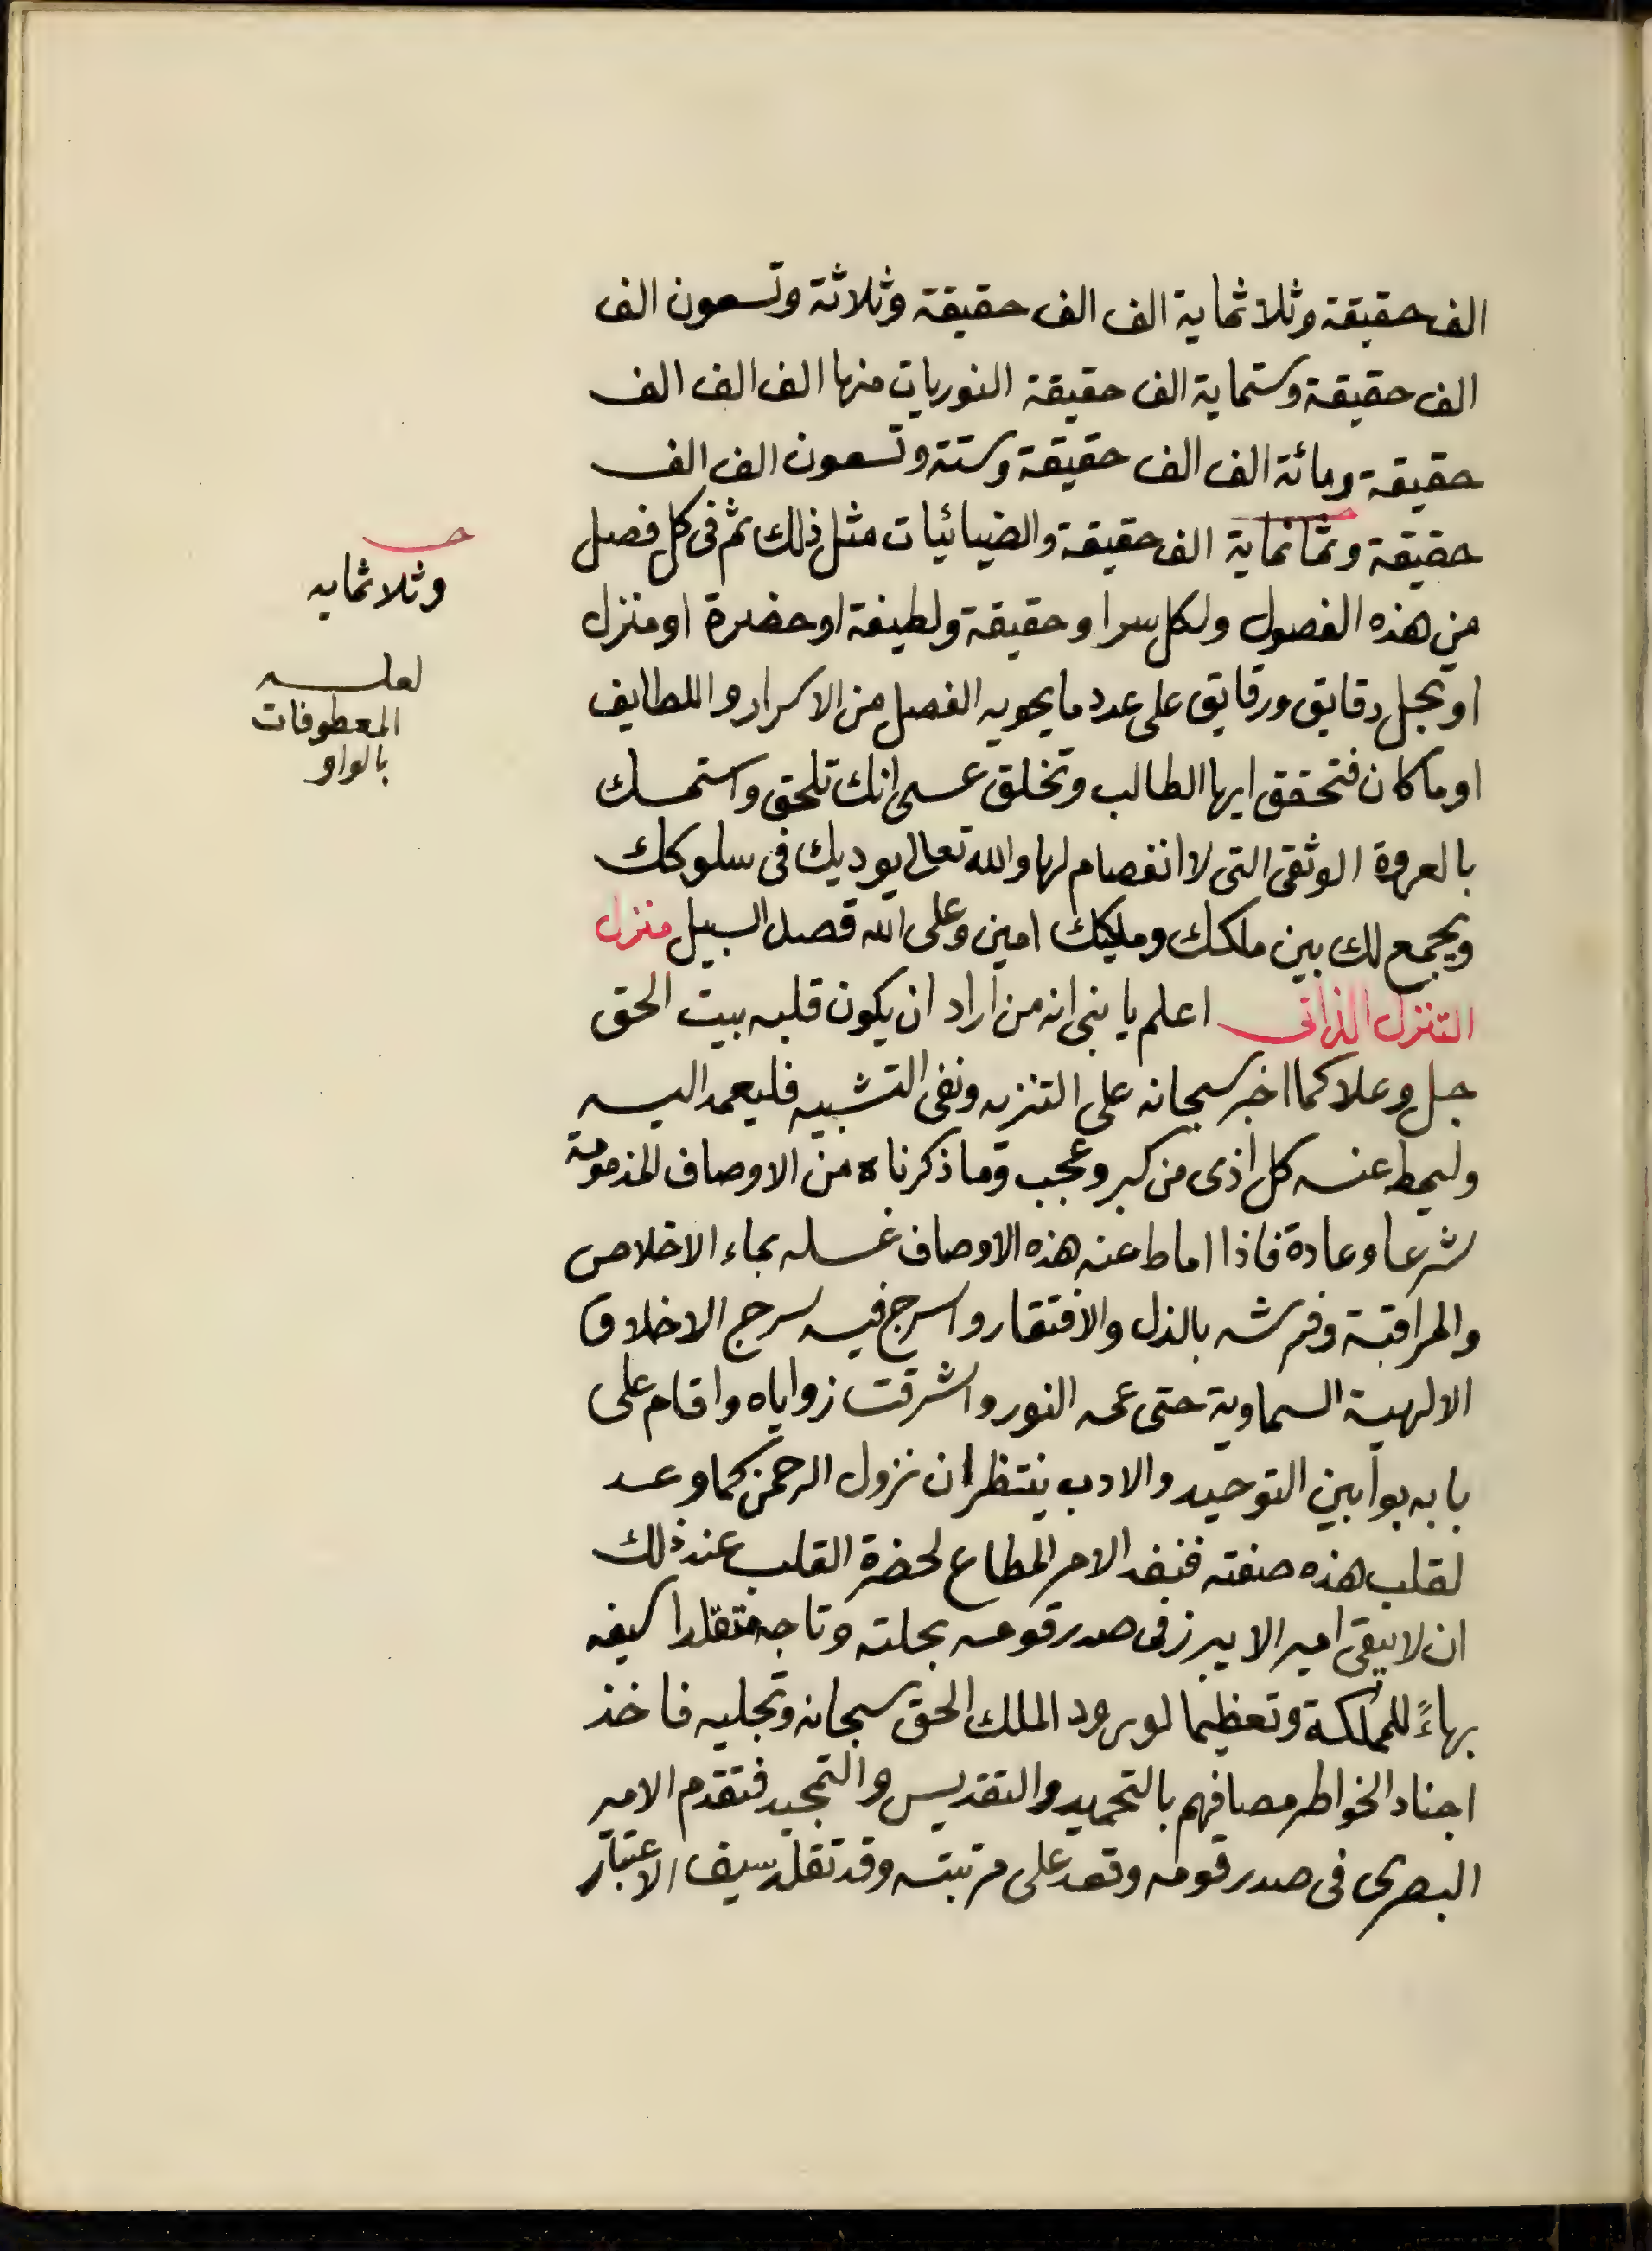 الف حقيقة وثلاثماية الف الف حقيقة وثلاثة وتسعون الف
الف حقيقة وستماية الف حقيقة النوريات منها الف الف الف
حقيقة ومائة الف الف حقيقة وستة وتسعون الف الف
حقيقة وثمانماية الف حقيقة والضيائيات مثل ذلك ثم فى كل فصل
من هذه الفصول ولكل سر او حقيقة ولطيفة او حضرة او منزل
او تجل دقايق ورقايق على عدد ما يحويه الفصل من الاسرار واللطايف
او ما كان فتحقق ايها الطالب وتخلق عسى انك تلحق واستمسك
بالعروة الوثقى التى لا انفصام لها والله تعالى يوديك فى سلوكك
ويجمع لك بين ملكك ومليكك امين وعلى الله قصد السبيل منزل
التنزل الذاتى اعلم يا بنى انه من اراد ان يكون قلبه بيت الحق
جل وعلا كما اخبر سبحانه على التنزيه ونفى التشبيه فليعمد اليه
وليمط عنه كل اذى من كبر وعجب وما ذكرناه من الاوصاف المذمومة
شرعا وعادة فاذا اماط عنه هذه الاوصاف غسله بماء الاخلاص
والمراقبة وفرشه بالذل والافتقار واسرج فيه سرج الاخلاق
الالهية السماوية حتى عمه النور واشرقت زواياه واقام على
بابه بوابين التوحيد والادب ينتظران نزول الرحمن كما وعد
لقلب هذه صفته فنفد الامر المطاع لحضرة القلب عند ذلك
ان لا يبقى امير الا يبرز فى صدر قومه بحلته وتاجه متقلدا سيفه
بهاءً للمملكة وتعظيما لورود الملك الحق سبحانه وتجليه فاخذ
اجناد الخواطر مصافهم بالتحميد والتقديس والتمجيد فتقدم الامير
البصرى فى صدر قومه وقعد على مرتبته وقد تقلد سيف الاعتبار
وثلاثمايه
لعله
المعطوفات
بالواو